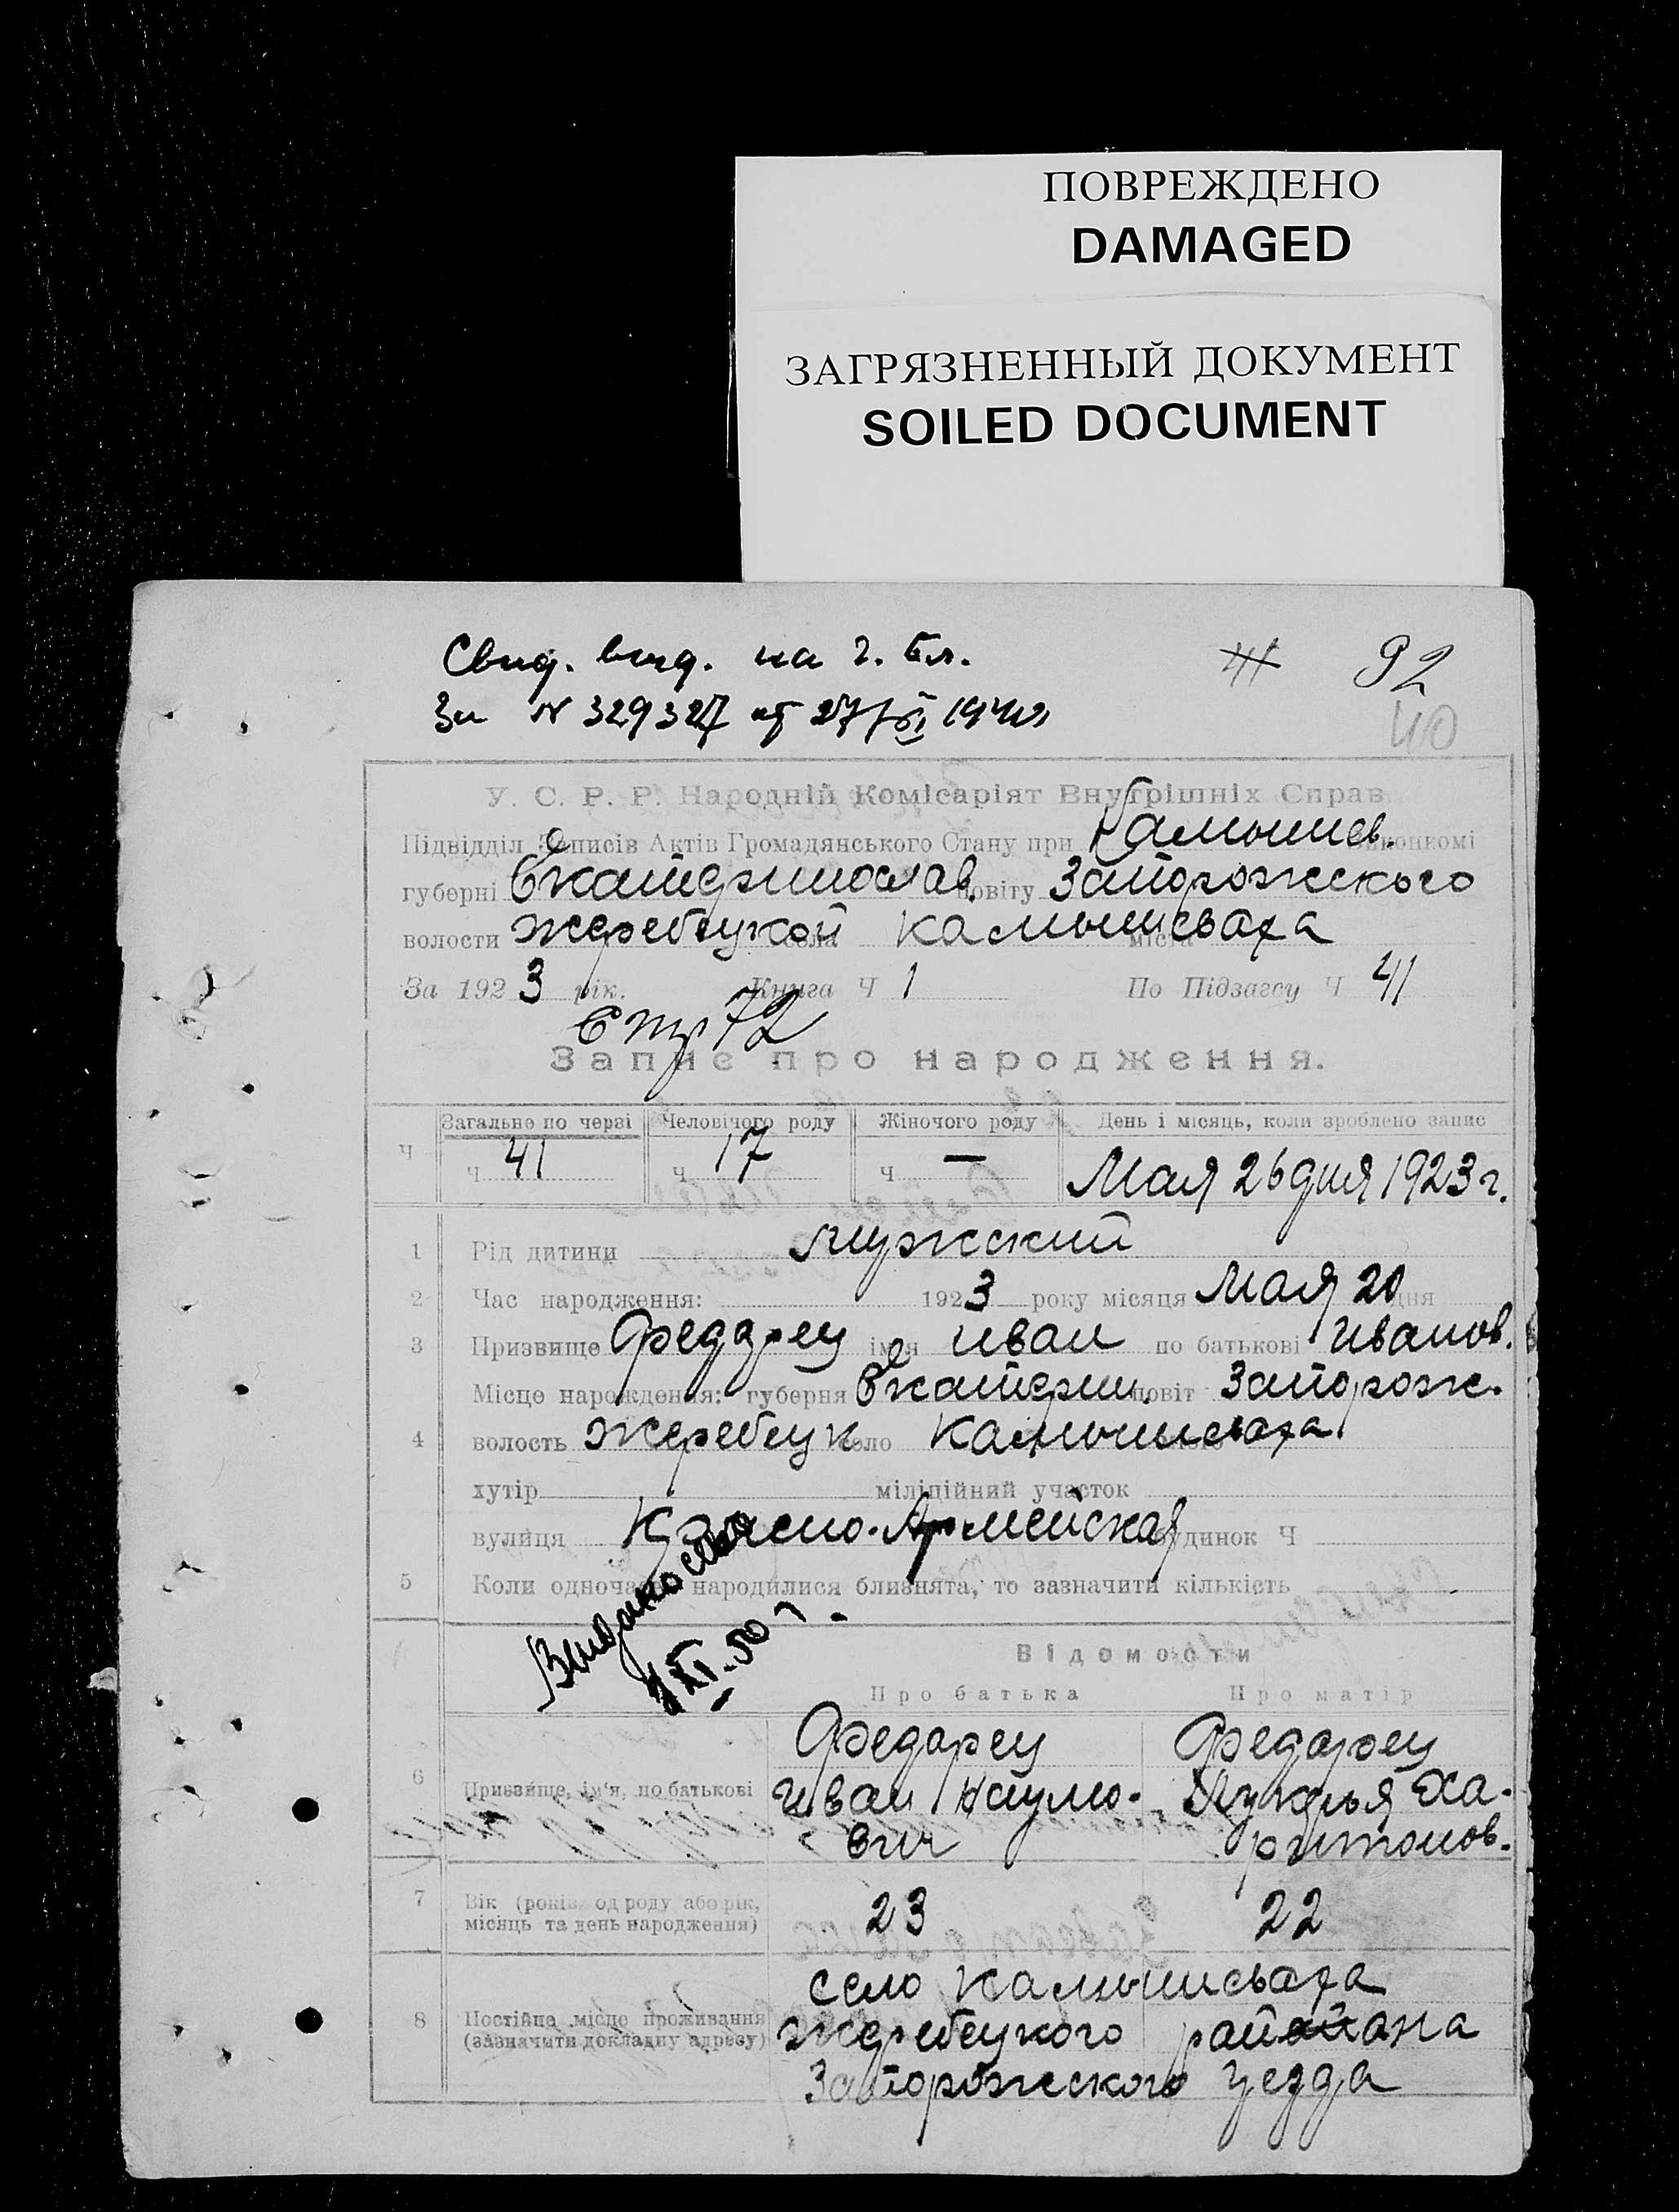 ПОВРЕЖДЕНО
DAMAGED
ЗАГРЯЗНЕННЫЙ ДОКУМЕНТ
SOILED DOCUMENT
Свид. выд. на г. бл.
За № 329327 от 27/XI 194
41 92
40
У. С. Р. Р. Народній Комісаріят Внутрішніх Справ
Підвідділ Записів Актів Громадянського Стану при Камышев. виконкомі
губерні Екатеринослав. повіту Запорожского
волости Жеребецкой села Камышеваха міста
За 1923 рік. Книга Ч 1 По Підзагсу Ч 41
Стр 72
Запис про народження.
Загальне по черзі Человічого роду Жіночого роду День і місяць, коли зроблено запис
Ч Ч 41 Ч 17 Ч — Мая 26 дня 1923 г.
1 Рід дитини мужский
2 Час народження: 1923 року місяця Мая 20 дня
3 Призвище Федарец імя Иван по батькові Иванов.
Місце нарождення: губерня Екатерин. повіт Запорож.
4 волость Жеребецк село Камышеваха
хутір міліційний участок
вулиця Красно-Армейская будинок Ч
5 Коли одночасно народилися близнята, то зазначити кількість
Видано
XI-50 г.
Відомости
Про батька Про матір
Федарец Федарец
6 Призвище, ім'я, по батькові Иван Наумо- Лукерья Ха-
вич ритонов.
7 Вік (років од роду або рік, 23 22
місяць та день народження)
село Камышеваха
8 Постійне місце проживання Жеребецкого района
(зазначити докладну адресу)
Запорожского уезда